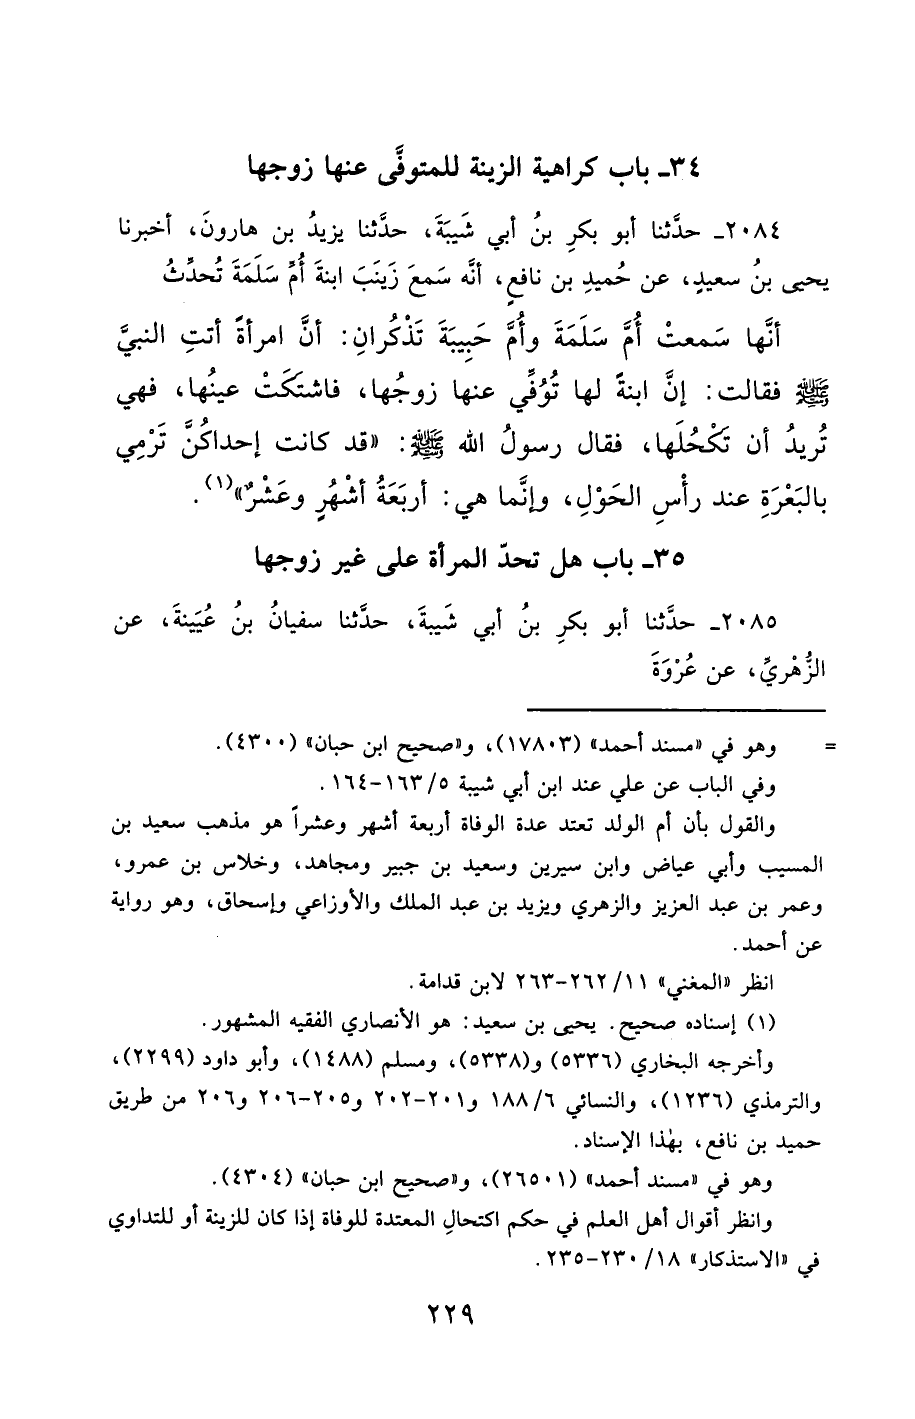 ٣٤ـ باب كراهية الزينة للمتوفَّى عنها زوجها
٢٠٨٤ـ حدَّثنا أبو بكرِ بنُ أبي شَيبَةَ، حدَّثنا يزيدُ بن هارونَ، أخبرنا
يحيى بنُ سعيدٍ، عن حُميدِ بن نافعٍ، أنَّه سَمعَ زَينَبَ ابنةَ أُمِّ سَلَمَةَ تُحدِّثُ
أنَّها سَمعتْ أُمَّ سَلَمَةَ وأُمَّ حَبِيبَةَ تَذْكُرانِ: أنَّ امرأةً أتتِ النبيَّ
ﷺ فقالت: إنَّ ابنةً لها تُوُفِّي عنها زوجُها، فاشتَكَتْ عينُها، فهي
تُريدُ أن تَكْحُلَها، فقال رسولُ الله ﷺ: «قد كانت إحداكُنَّ تَرْمِي
بالبَعْرَةِ عند رأْسِ الحَوْلِ، وإنَّما هي: أربَعَةُ أشْهُرٍ وعَشْرٌ»(١).
٣٥ـ باب هل تحدّ المرأة على غير زوجها
٢٠٨٥ـ حدَّثنا أبو بكرِ بنُ أبي شَيبةَ، حدَّثنا سفيانُ بنُ عُيَينةَ، عن
الزُّهْريِّ، عن عُرْوَةَ
= وهو في «مسند أحمد» (١٧٨٠٣)، و«صحيح ابن حبان» (٤٣٠٠).
وفي الباب عن علي عند ابن أبي شيبة ٥/ ١٦٣-١٦٤.
والقول بأن أم الولد تعتد عدة الوفاة أربعة أشهر وعشراً هو مذهب سعيد بن
المسيب وأبي عياض وابن سيرين وسعيد بن جبير ومجاهد، وخلاس بن عمرو،
وعمر بن عبد العزيز والزهري ويزيد بن عبد الملك والأوزاعي وإسحاق، وهو رواية
عن أحمد.
انظر «المغني» ١١/ ٢٦٢-٢٦٣ لابن قدامة.
(١) إسناده صحيح. يحيى بن سعيد: هو الأنصاري الفقيه المشهور.
وأخرجه البخاري (٥٣٣٦) و(٥٣٣٨)، ومسلم (١٤٨٨)، وأبو داود (٢٢٩٩)،
والترمذي (١٢٣٦)، والنسائي ٦/ ١٨٨ و٢٠١-٢٠٢ و٢٠٥-٢٠٦ و٢٠٦ من طريق
حميد بن نافع، بهٰذا الإسناد.
وهو في «مسند أحمد» (٢٦٥٠١)، و«صحيح ابن حبان» (٤٣٠٤).
وانظر أقوال أهل العلم في حكم اكتحالِ المعتدة للوفاة إذا كان للزينة أو للتداوي
في «الاستذكار» ١٨/ ٢٣٠-٢٣٥.
٢٢٩